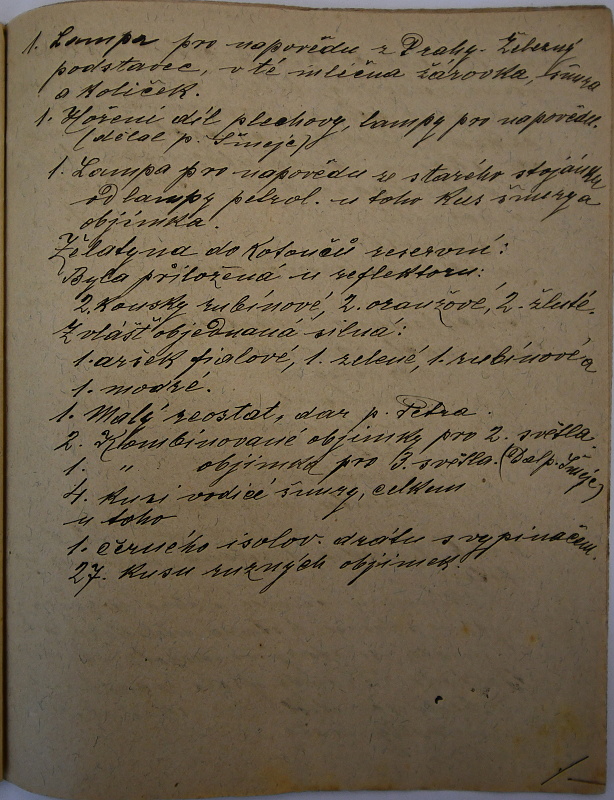 1. Lampa pro napovědu z Prahy. Železný
podstavec, v té mléčna žárovka, šnura
a količek.
1. Hoření díl plechovy, lampy pro napovědu.
(dělal p. Šmejc)
1. Lampa pro napovědu ze starého stojánku
od lampy petrol. u toho kus šnura a
objimka.
Želatyna do kotoučů reservní:
Byla přiložená u reflektoru:
2. kousky rubínové, 2. oranžové, 2. žluté.
Zvlášť objednana silná:
1. aršek fialové, 1. zelené, 1. rubínové a
1. modré.
1. Malý reostat, dar p. Petra.
2. Kombinované objimky pro 2. světla
1. " objimka pro 3. světla. (Dal p. Šmejc)
4. kusi vodicí šnury, celkem
u toho
1. černého isolov. drátu s vypinačem.
27. kusu ruzných objimek.